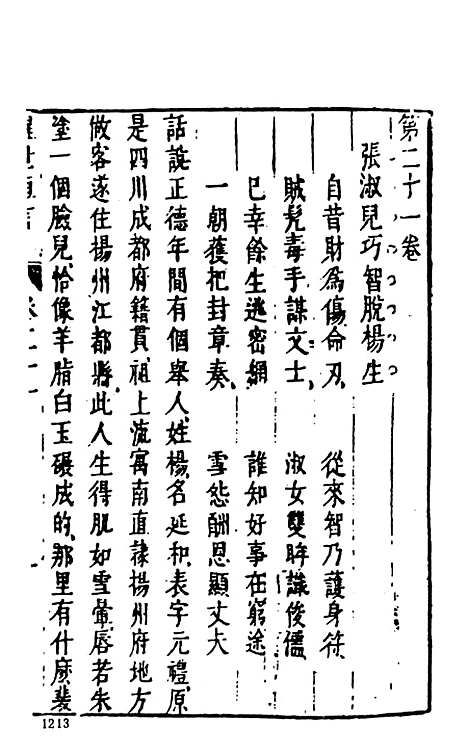 第二十一卷
張淑兒巧智脫楊生
自昔財為傷命刃 從來智乃護身符
賊髡毒手謀文士 淑女雙眸識俊儒
已幸餘生逃密網 誰知好事在窮途
一朝獲把封章奏 雪怨酬恩顯丈夫
話說正德年間有個舉人姓楊名延和表字元禮原
是四川成都府籍貫祖上流寓南直隸揚州府地方
做客遂住揚州江都縣此人生得肌如雪暈唇若朱
塗一個臉兒恰像羊脂白玉碾成的那里有什麼裴
醒世恒言 卷二十一
1213